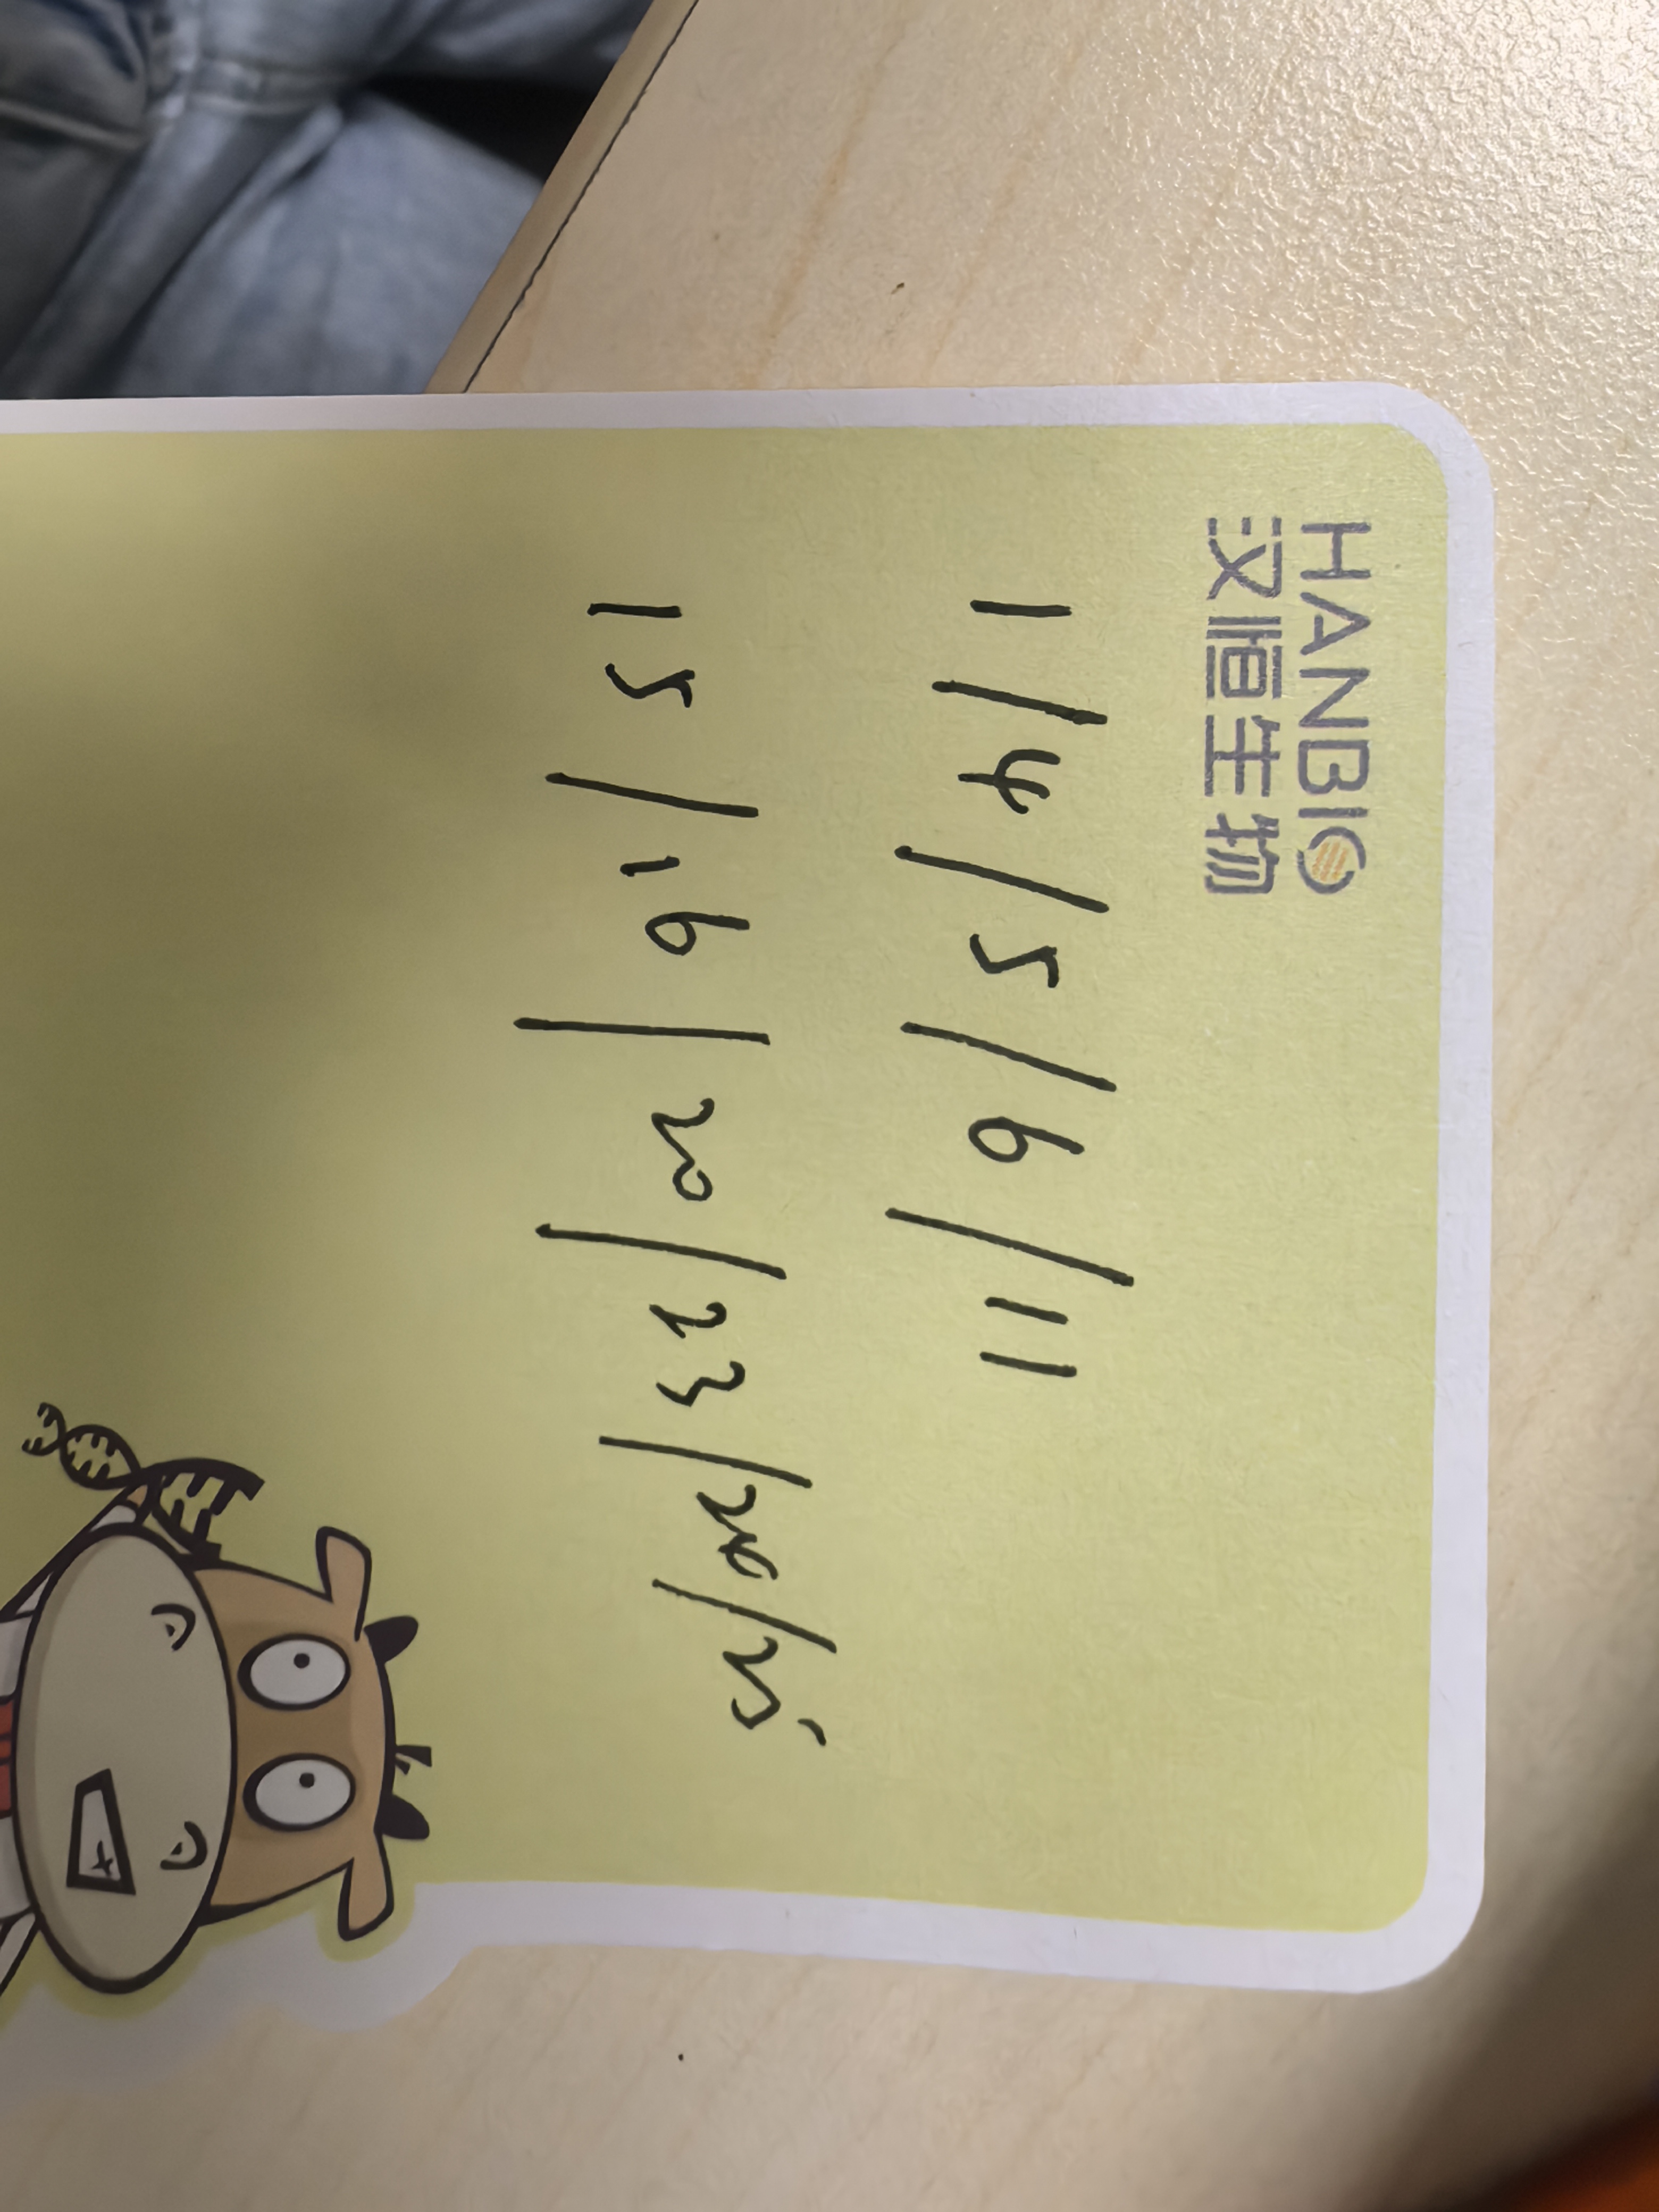 HANBIO
汉恒生物
1/4/5/6/11
15/16/20/23/24/25